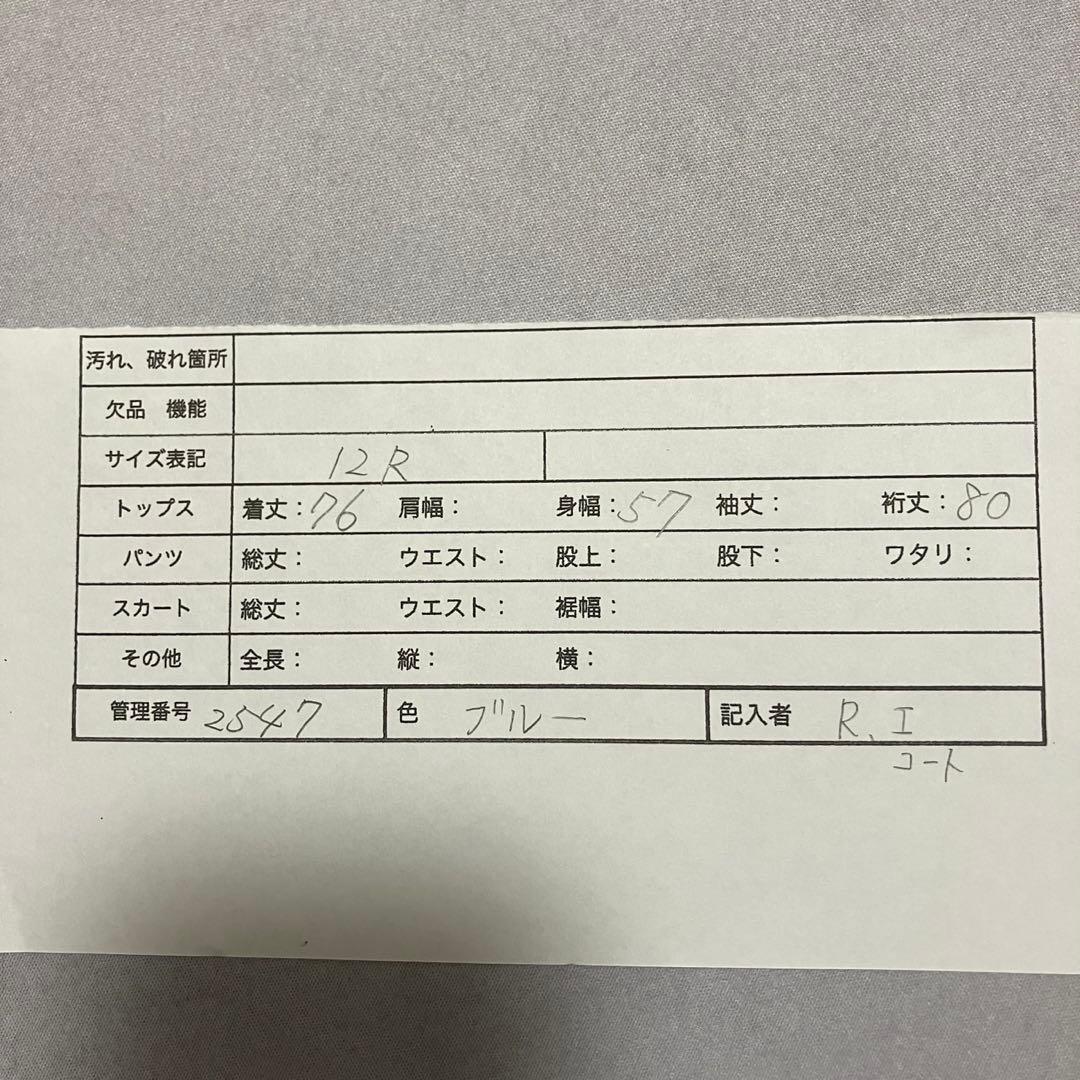 汚れ、破れ箇所
欠品 機能
サイズ表記 12R
トップス 着丈：76 肩幅： 身幅：57 袖丈： 裄丈：80
パンツ 総丈： ウエスト： 股上： 股下： ワタリ：
スカート 総丈： ウエスト： 裾幅：
その他 全長： 縦： 横：
管理番号 2547 色 ブルー 記入者 R、I
コート